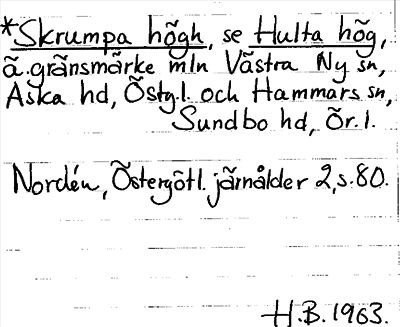 *Skrumpa högh, se Hulta hög,
ä. gränsmärke mln Västra Ny sn,
Aska hd, Östg.l. och Hammars sn,
Sundbo hd, Ör. l.
Nordén, Östergötl. järnålder 2, s. 80.
H.B. 1963.